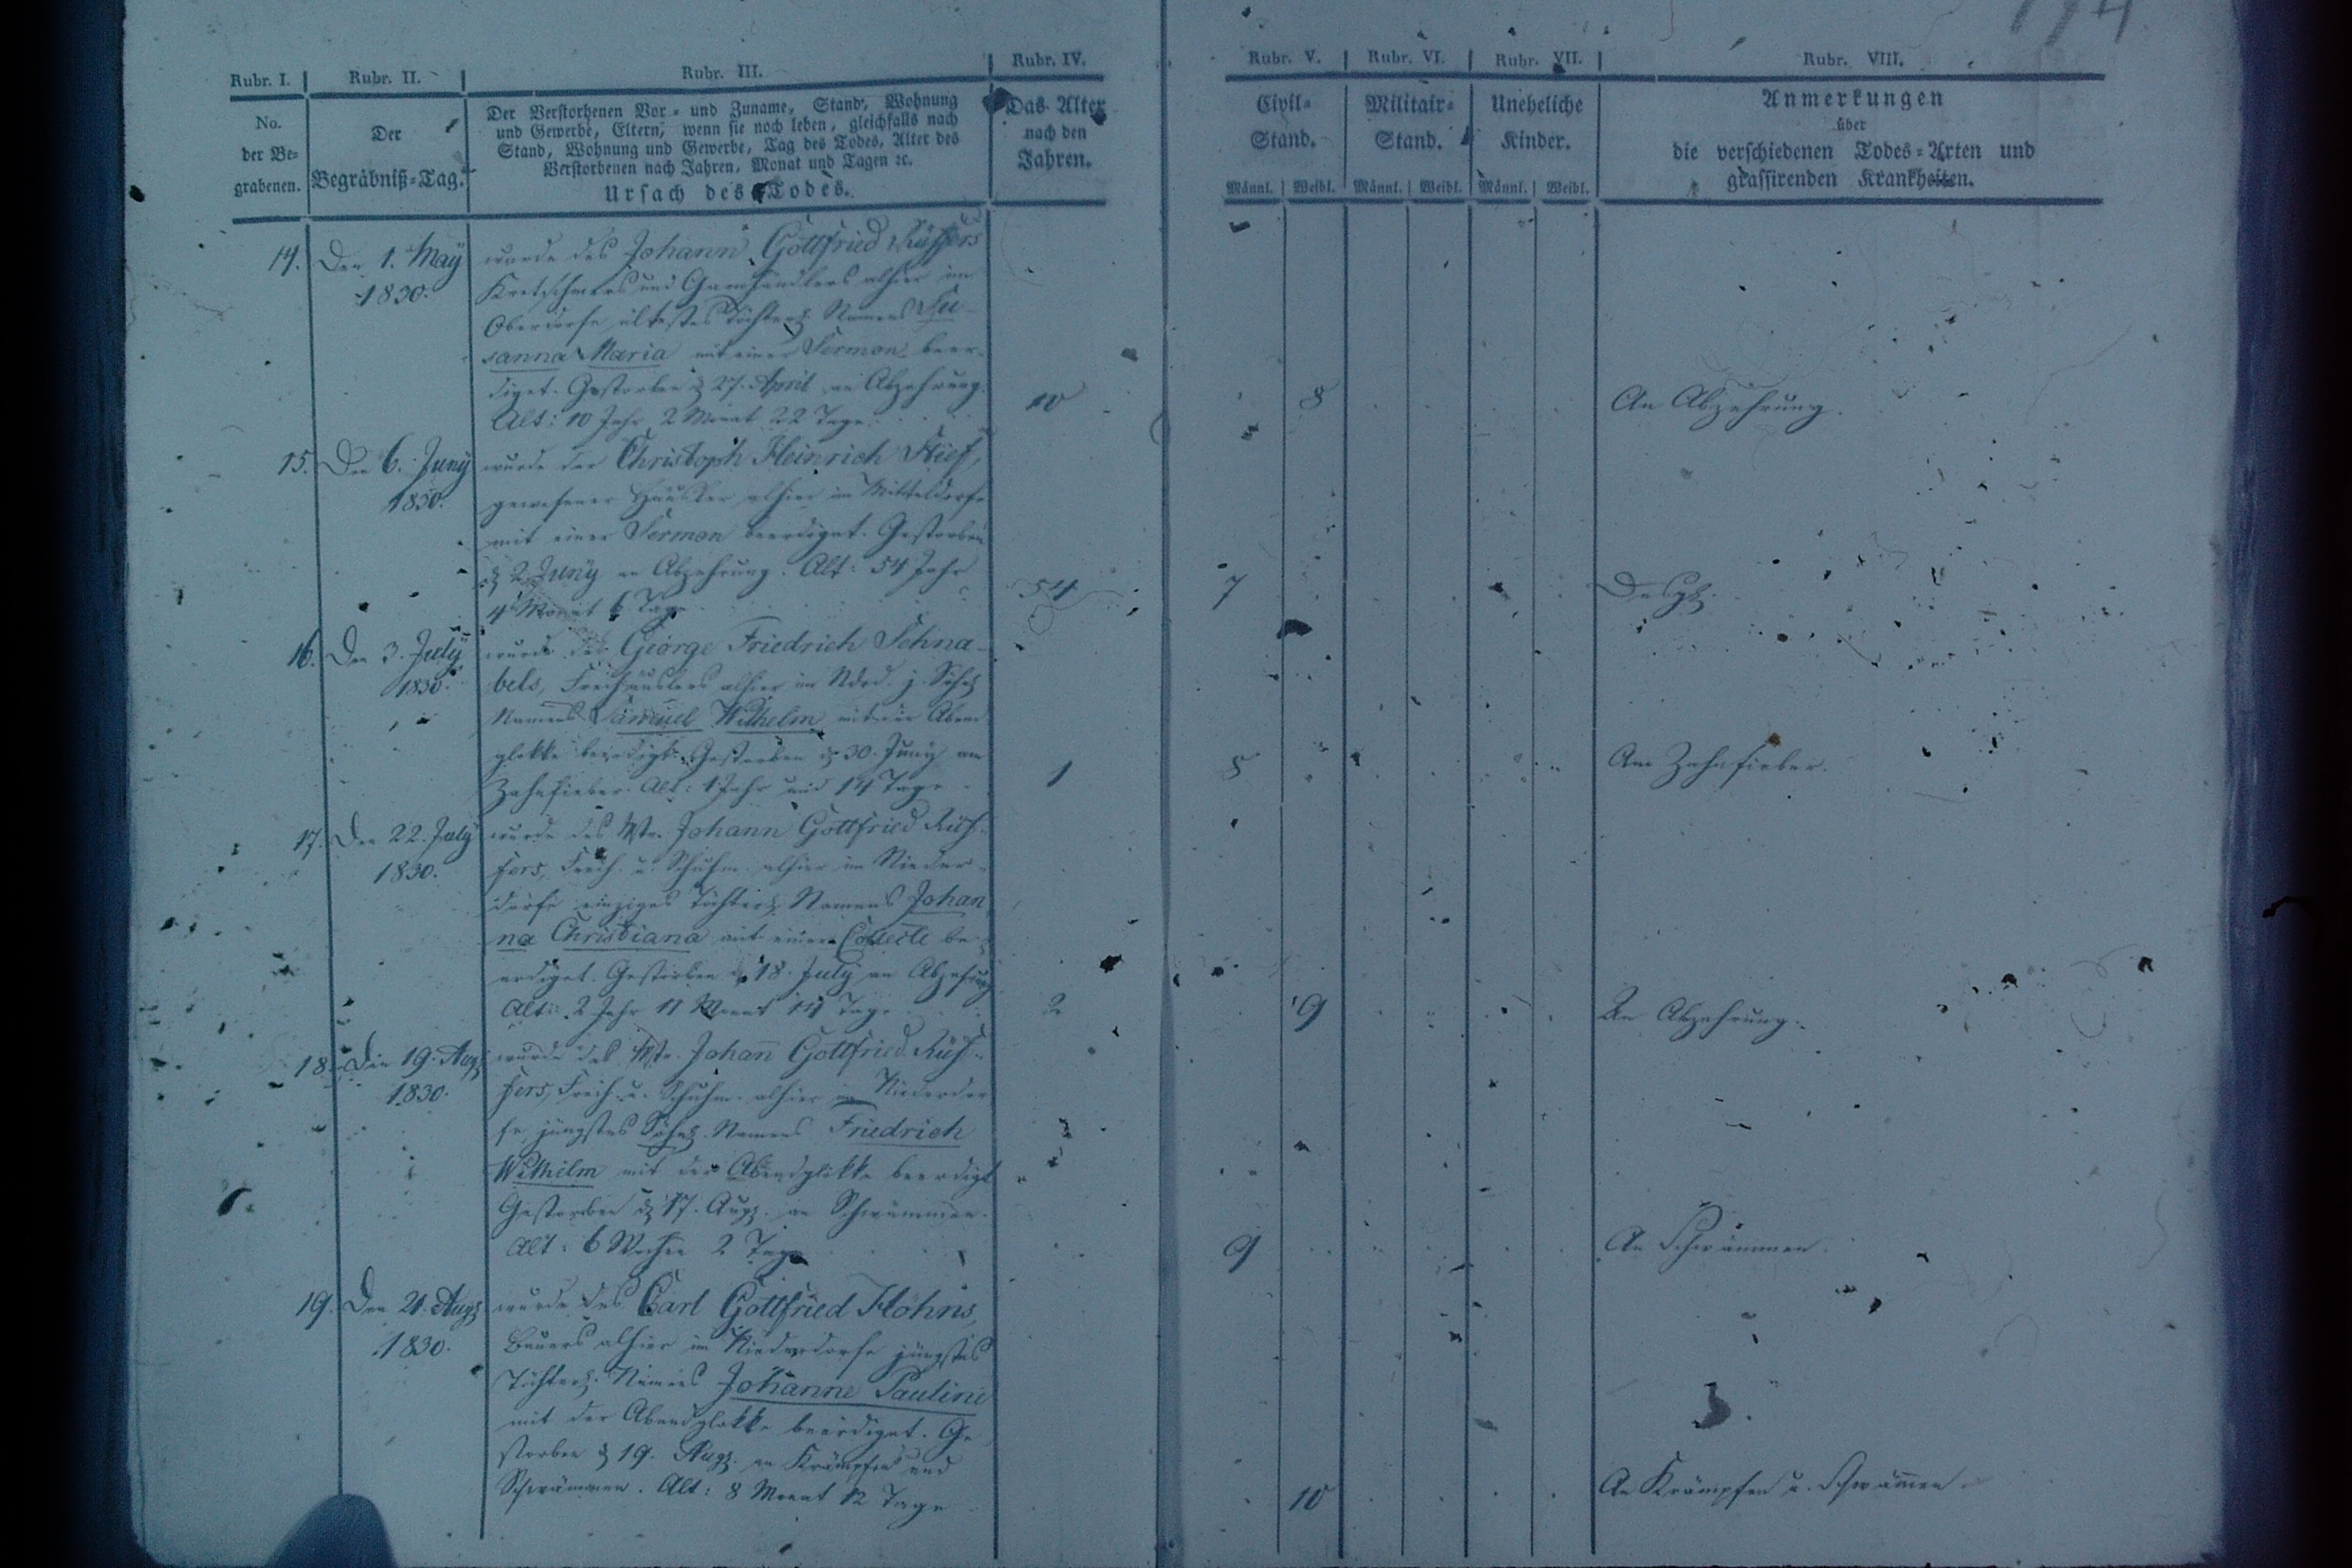 Rubr. I. Rubr. II. Rubr. III. Rubr. IV. Rubr. V. Rubr. VI. Rubr. VII. Rubr. VIII.
No. der Be= grabenen.
Der Begräbniß=Tag.
Der Verstorbenen Vor= und Zuname, Stand, Wohnung
und Gewerbe, Eltern, wenn sie noch leben, gleichfalls nach
Stand, Wohnung und Gewerbe, Tag des Todes, Alter des
Verstorbenen nach Jahren, Monat und Tagen ꝛc.
Ursach des Todes.
Das Alter
nach den
Jahren.
Civil=
Stand.
Männl. Weibl.
Militair=
Stand.
Männl. Weibl.
Uneheliche
Kinder.
Männl. Weibl.
Anmerkungen
über
die verschiedenen Todes=Arten und
grassirenden Krankheiten.
14. Den 1. May
1830.
wurde des Johann Gottfried
Kretschmers und Garnhändlers alhier im
Oberdorfe ältestes Töchterl. Namens Su-
sanna Maria mit einer Sermon beer-
diget. Gestorben d. 27. April an Abzehrung.
Alt: 10 Jahr 2 Monat 22 Tage.
10 8 An Abzehrung.
15. Den 6. Juny
1830.
wurde der Christoph Heinrich
gewesener Häusler alhier im Mitteldorfe
mit einer Sermon beerdiget. Gestorben
d. 2. Juny an Abzehrung. Alt: 54 Jahr
4 Monat 6 Tage
54 7 Desgl.
16. Den 3. July
1830.
wurde des George Friedrich Schna-
bels, Freihäuslers alhier im Ndrd. j. Söhnl.
Namens Samuel Wilhelm mit der Abend
glokke beerdigt. Gestorben d. 30. Juny am
Zahnfieber. Alt: 1 Jahr und 14 Tage
1 8 Am Zahnfieber.
17. Den 22. July
1830.
wurde des Mstr. Johann Gottfried Rüf-
fers, Freih. u. Schuhm. alhier im Nieder-
dorfe einziges Töchterl. Namens Johan
na Christiana mit einer Collecte be-
erdiget. Gestorben d. 18. July an Abzehrung
Alt: 2 Jahr 11 Monat Tage
2 9 An Abzehrung.
18. Den 19. Aug.
1830.
wurde des Mstr. Johann Gottfried Rüf-
fers, Freih. u. Schuhm. alhier im Niederdor
fe jüngstes Söhnl. Namens Friedrich
Wilhelm mit der Abendglokke beerdigt
Gestorben d. 17. Aug. an Schwämmen.
Alt: 6 Wochen 2 Tage
9 An Schwämmen.
19. Den 21. Aug.
1830.
wurde des Carl Gottfried Höhns,
Bauers alhier im Niederdorfe jüngstes
Töchterl. Namens Johanne Pauline
mit der Abendglokke beerdiget. Ge
storben d. 19. Aug. an Krämpfen und
Schwämmen. Alt: 8 Monat 12 Tage
10 An Krämpfen u. Schwämen